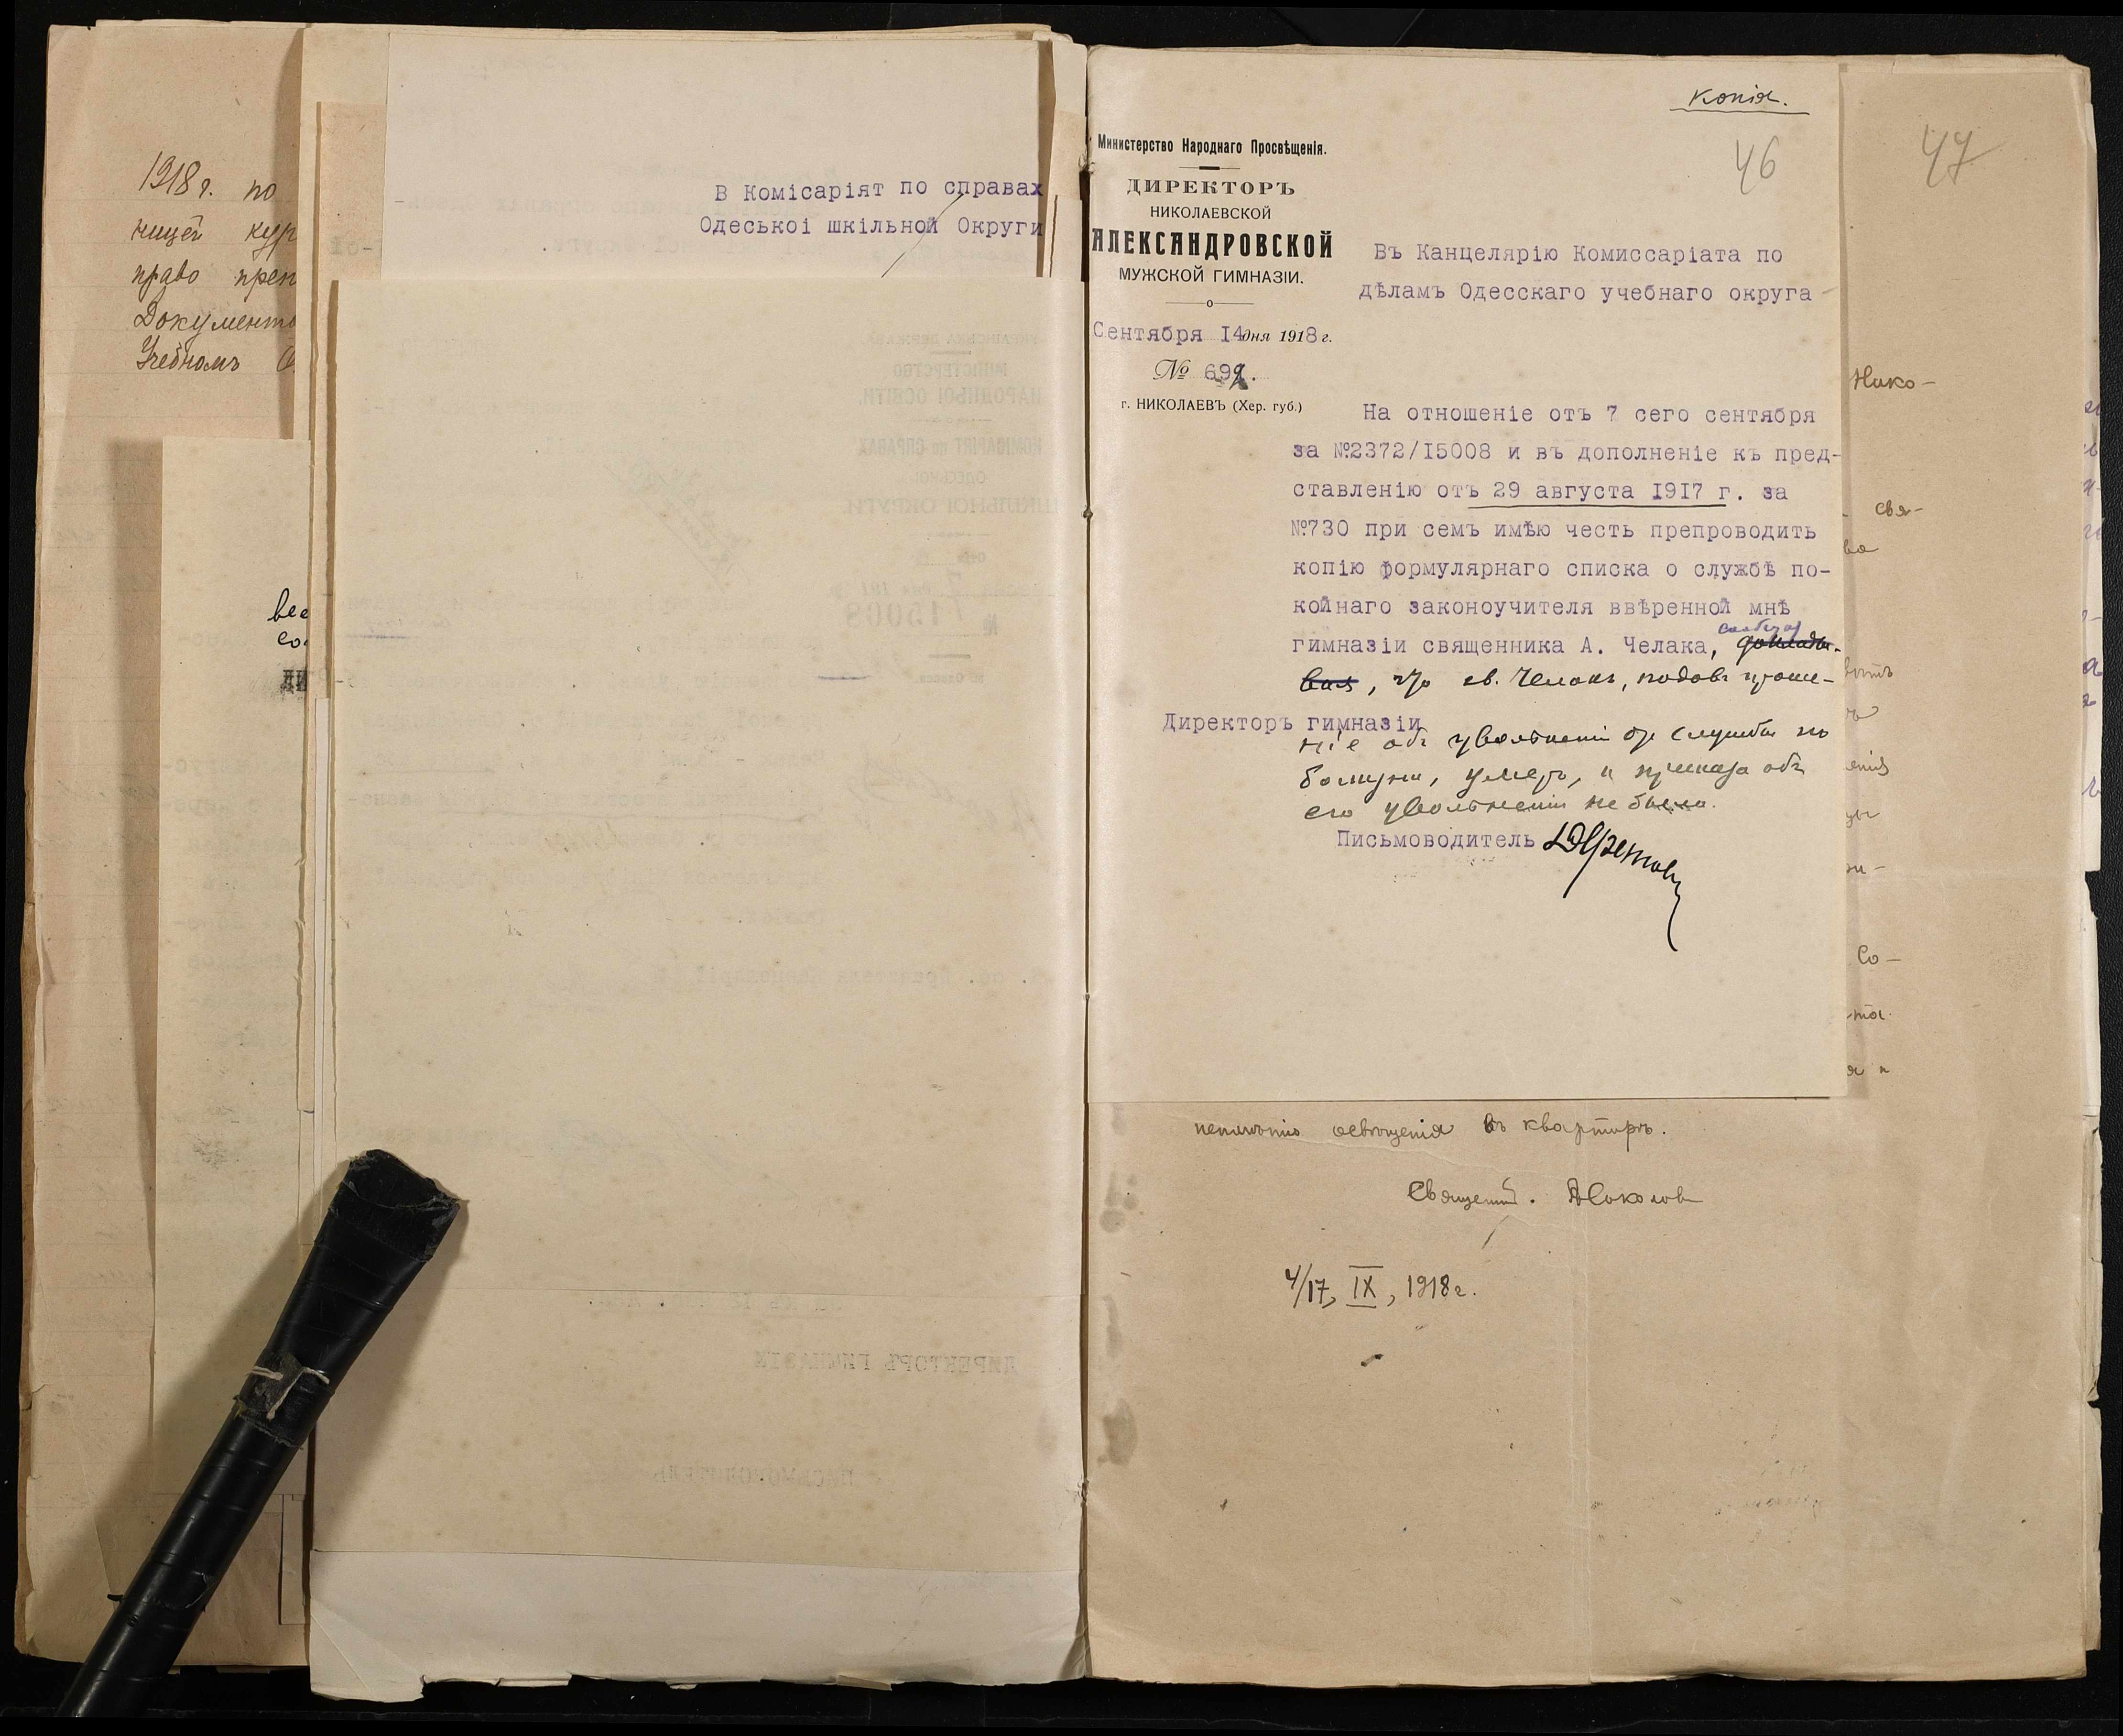 1918 г. по
ницей кур
право преп
Документ
Учебномъ О
вес
со
ди
В Комісаріят по справах
Одеськоі шкільной Округи
копія.
46
47
Министерство Народнаго Просвѣщенія.
ДИРЕКТОРЪ
НИКОЛАЕВСКОЙ
АЛЕКСАНДРОВСКОЙ
МУЖСКОЙ ГИМНАЗІИ.
Сентября 14 дня 1918 г.
№ 699.
г. НИКОЛАЕВЪ (Хер. губ.)
Въ Канцелярію Комиссаріата по
дѣламъ Одесскаго учебнаго округа
На отношеніе отъ 7 сего сентября
за №2372/15008 и въ дополненіе къ пред-
ставленію отъ 29 августа 1917 г. за
№730 при семъ имѣю честь препроводить
копію формулярнаго списка о службѣ по-
койнаго законоучителя ввѣренной мнѣ
гимназіи священника А. Челака, сообщая
, что св. Челакъ, подавъ проше-
Директоръ гимназіи
ніе объ увольненіи от службы по
болѣзни, умеръ, и приказа объ
его увольненіи не было.
Письмоводитель
Нико-
свя-
Со-
непимѣнію освѣщенія въ квартирѣ.
Священн. Соколов
4/17, IX, 1918 г.